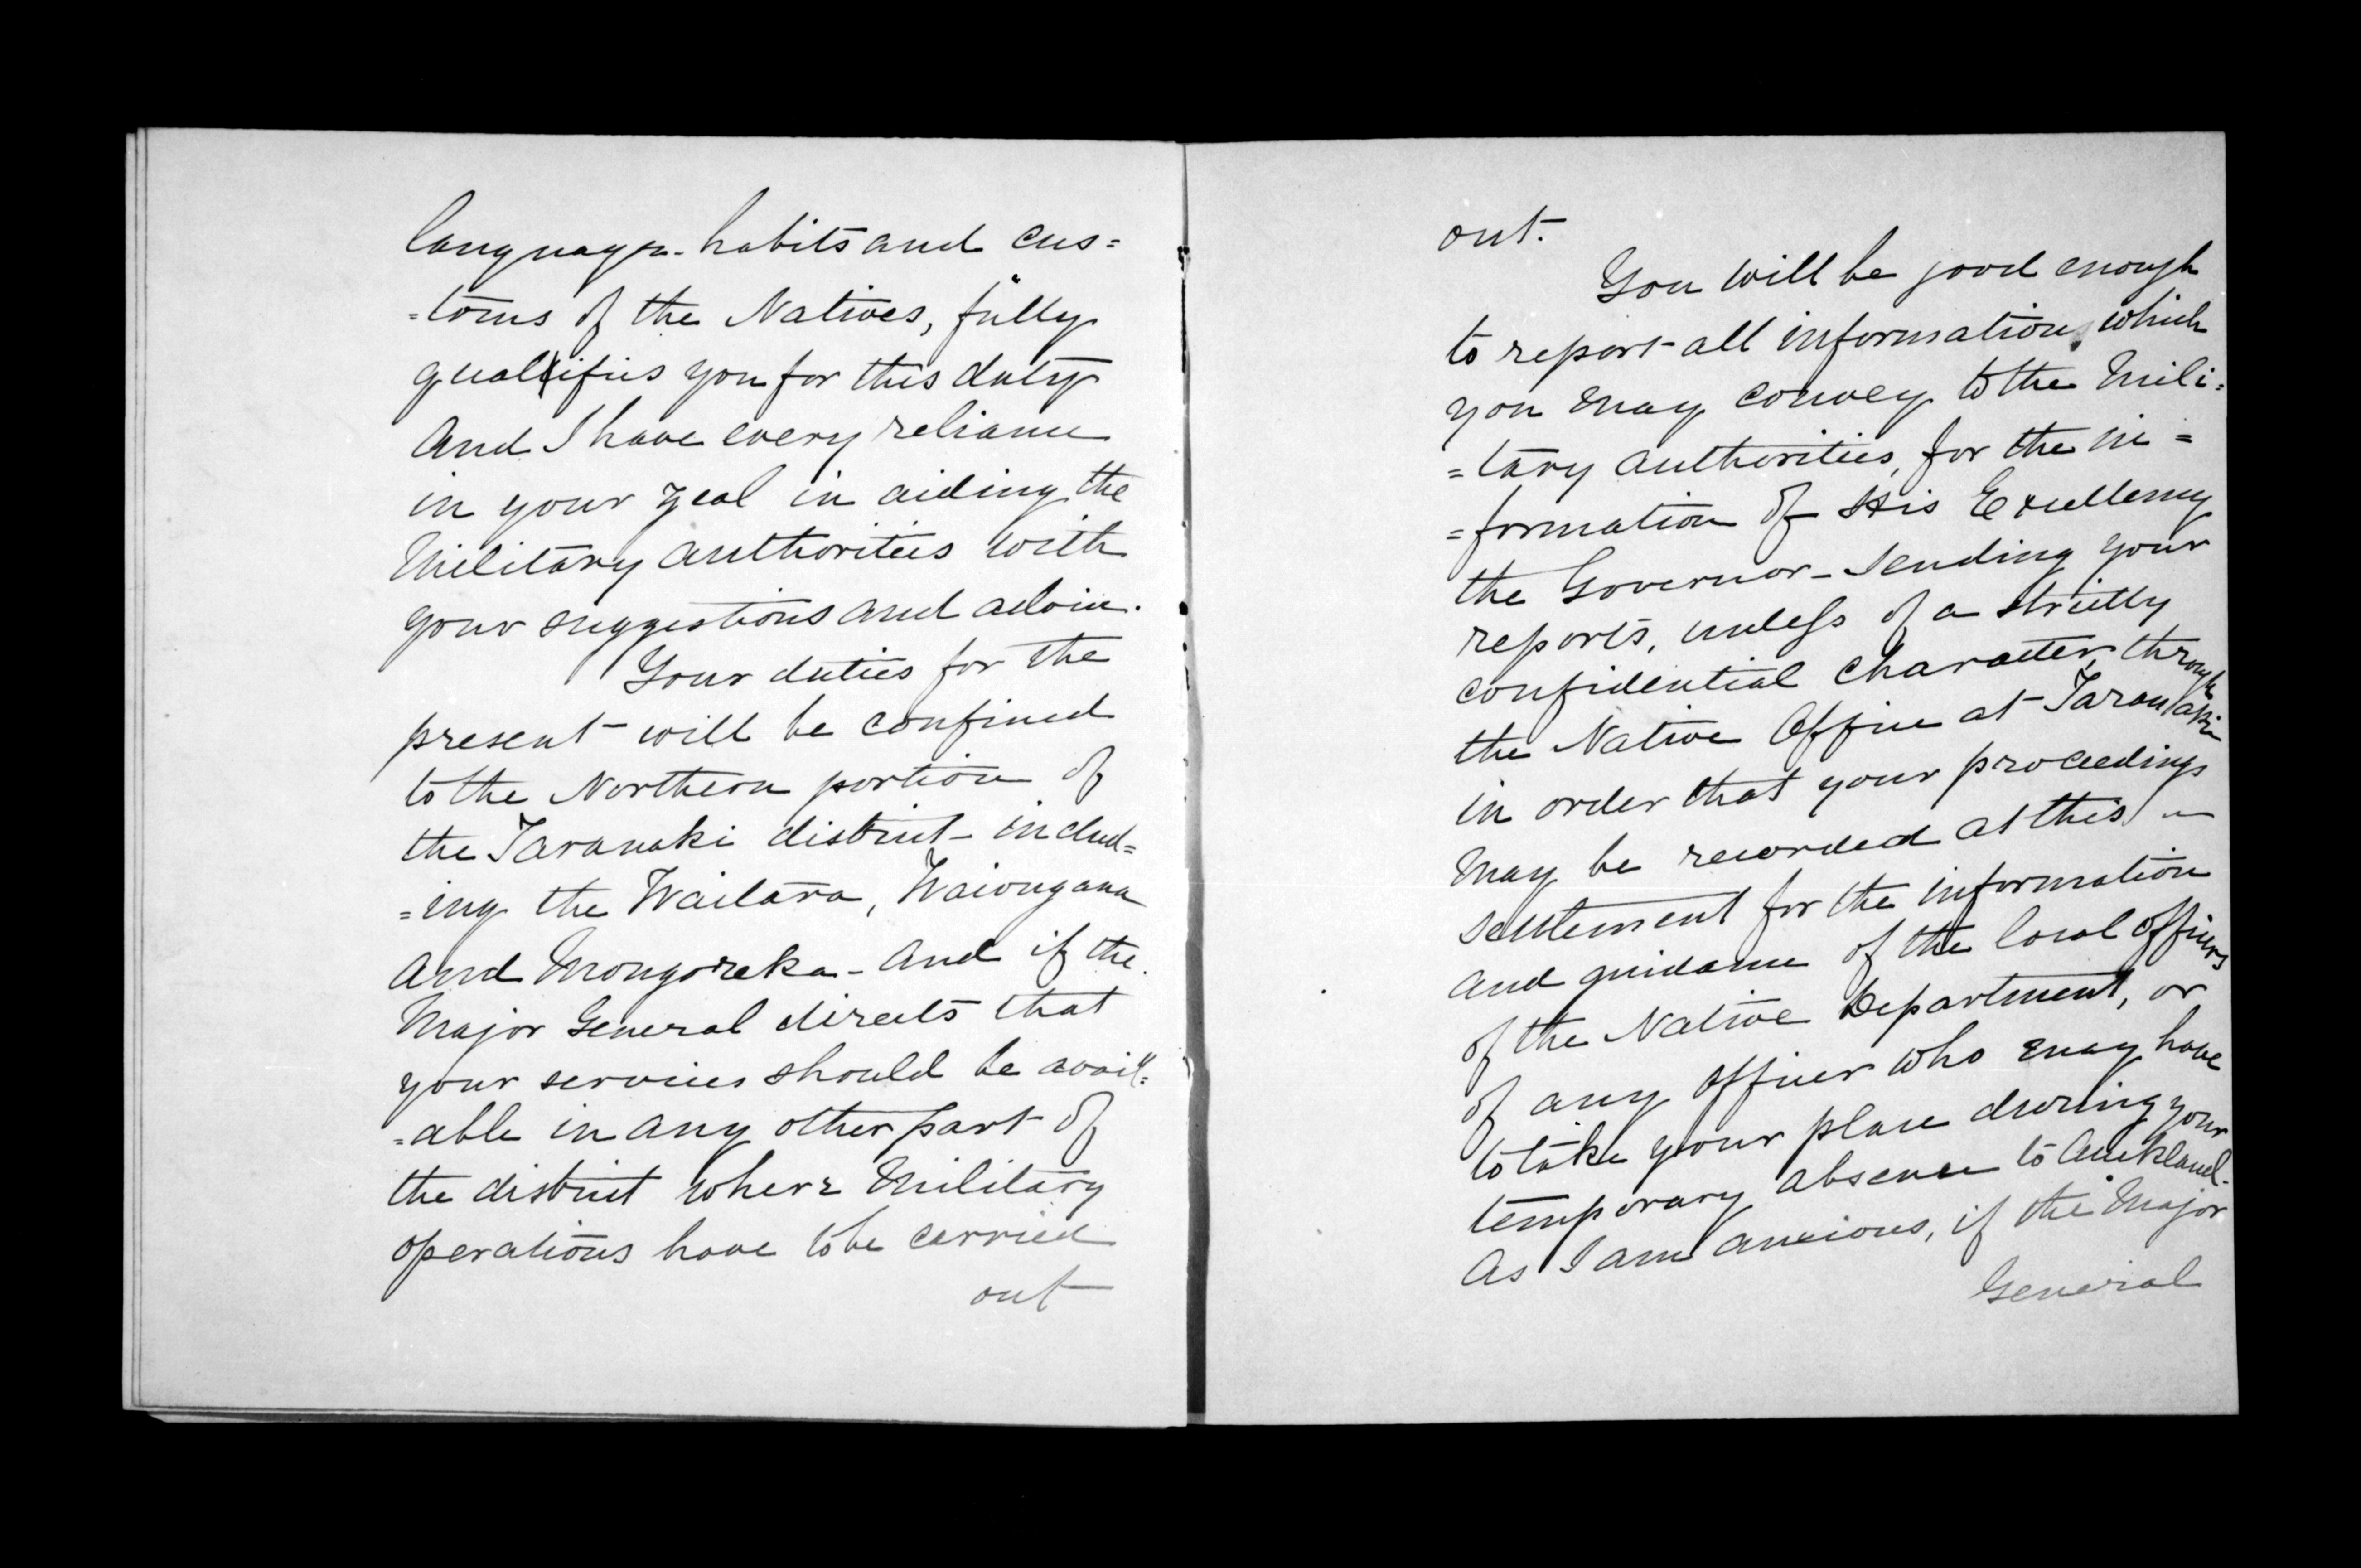 language. habits and cus=
=toms of the Natives, fully
qualifies you for this duty
And I have every reliance
in your zeal in aiding the
Military authorities with
your suggestions and advice.
Your duties for the
present will be confined
to the Northern portion of
the Taranaki district - includ=
=ing the Waitara, Waiongana
and Mongoreka - And if the
Major General directs that
your services should be avail=
=able in any other part of
the district where Military
operations have to be carried
out
out.
You will be good enough
to report all information which
you may convey to the Mili=
=tary authorities, for the in=
=formation of His Excellency
the Governor - sending your
reports, unless of a strictly
confidential character, through
the Native Office at Taranaki
in order that your proceedings
may be recorded at this
settlement for the information
and guidance of the local officers
of the Native Department, or
of any officer who may have
to take your place during your
temporary absence to Auckland.
As I am anxious, if the Major
General